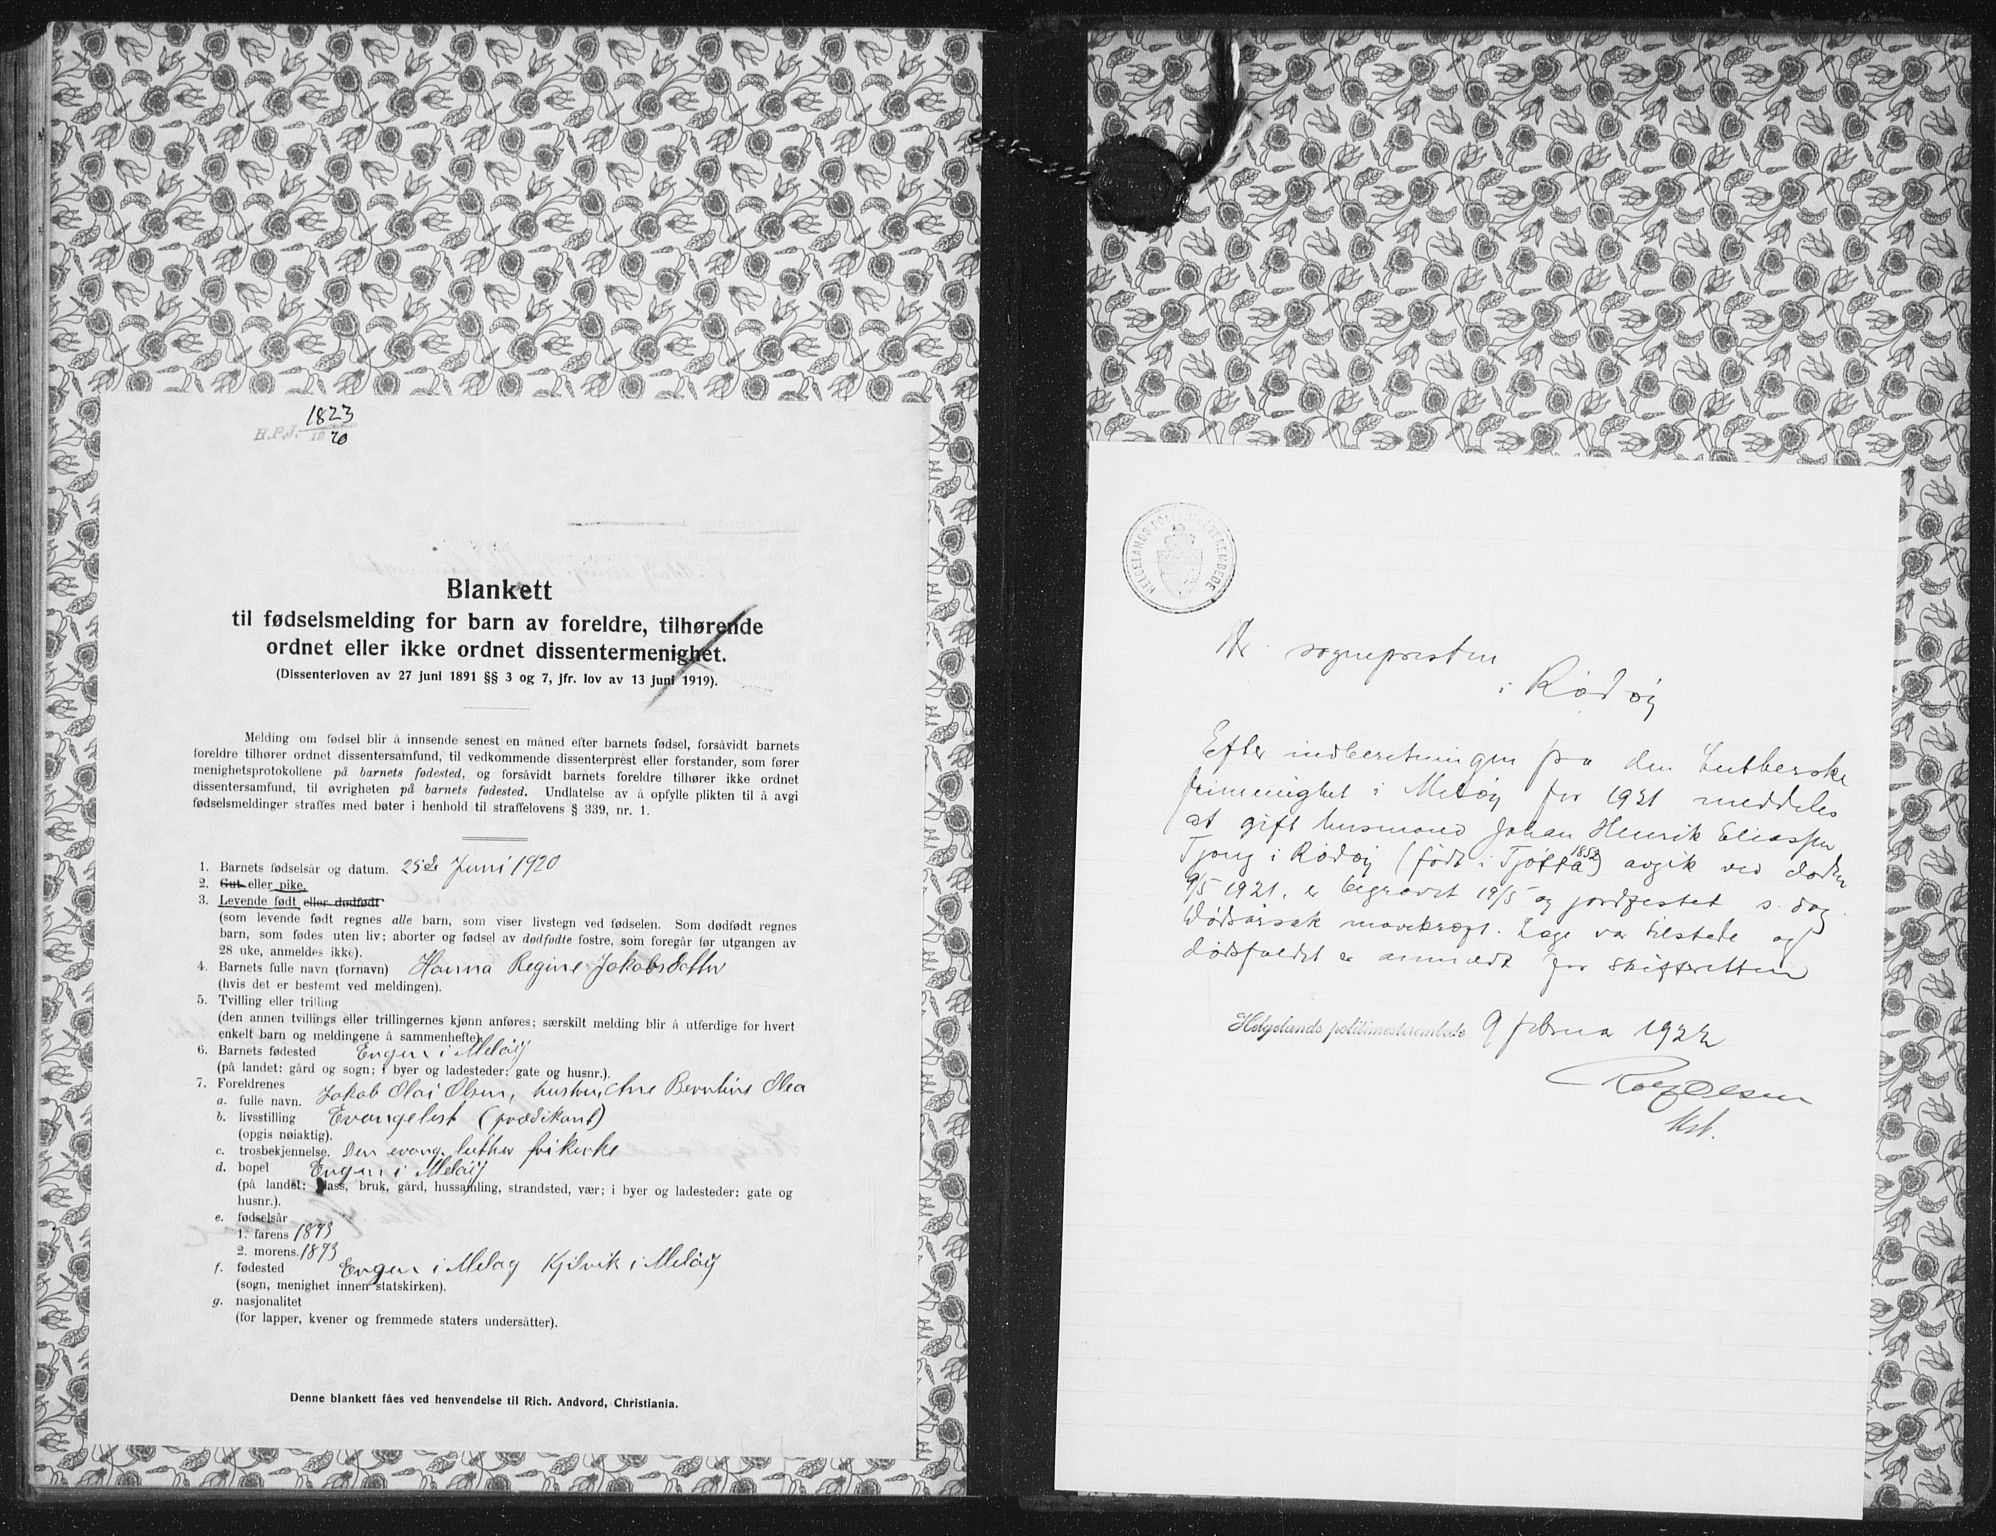 1823
H.P.J. 1920
Blankett
til fødselsmelding for barn av foreldre, tilhørende
ordnet eller ikke ordnet dissentermenighet.
(Dissenterloven av 27 juni 1891 §§ 3 og 7, jfr. lov av 13 juni 1919).
Melding om fødsel blir å innsende senest en måned efter barnets fødsel, forsåvidt barnets
foreldre tilhører ordnet dissentersamfund, til vedkommende dissenterprest eller forstander, som fører
menighetsprotokollene på barnets fødested, og forsåvidt barnets foreldre tilhører ikke ordnet
dissentersamfund, til øvrigheten på barnets fødested. Undlatelse av å opfylle plikten til å avgi
fødselsmeldinger straffes med bøter i henhold til straffelovens § 339, nr. 1.
1. Barnets fødselsår og datum. 25de Juni 1920
2. Gut eller pike.
3. Levende født eller dødfødt
(som levende født regnes alle barn, som viser livstegn ved fødselen. Som dødfødt regnes
barn, som fødes uten liv; aborter og fødsel av dødfødte fostre, som foregår før utgangen av
28 uke, anmeldes ikke).
4. Barnets fulle navn (fornavn) Hanna Regine Jakobsdatter
(hvis det er bestemt ved meldingen).
5. Tvilling eller trilling
(den annen tvillings eller trillingernes kjønn anføres; særskilt melding blir å utferdige for hvert
enkelt barn og meldingene å sammenhefte).
6. Barnets fødested Engen i Meløy
(på landet: gård og sogn; i byer og ladesteder: gate og husnr.).
7. Foreldrenes
a. fulle navn. Jakob Olai Olsen, hustru Ane Berntine Olea
b. livsstilling Evangelist (prædikant)
(opgis nøiaktig).
c. trosbekjennelse. Den evang. luther frikirke
d. bopel Engen i Meløy
(på landet: plass, bruk, gård, hussamling, strandsted, vær; i byer og ladesteder: gate og
husnr.).
e. fødselsår
1. farens 1893
2. morens. 1893
f. fødested Engen i Meløy Kjilvik i Meløy
(sogn, menighet innen statskirken).
g. nasjonalitet
(for lapper, kvener og fremmede staters undersåtter).
Denne blankett fåes ved henvendelse til Rich. Andvord, Christiania.
HELGELANDS POLITIMESTEREMBEDE
Hr. sognepresten
i Rødøy
Efter indberetningen fra den Lutherske
frimenighet i Meløy for 1921 meddeles
at gift husmand Johan Henrik Eliassen
Tjong i Rødøy (født i Tjøtta 1852) avgik ved døden
9/5 1921, er begravet 19/5 og jordfestet s. dag.
Dødsårsak mavekræft. Læge var tilstede og
dødsfaldet er anmeldt for skifteretten
Helgelands politimesterembede 9 februar 1922
Rolf Olsen